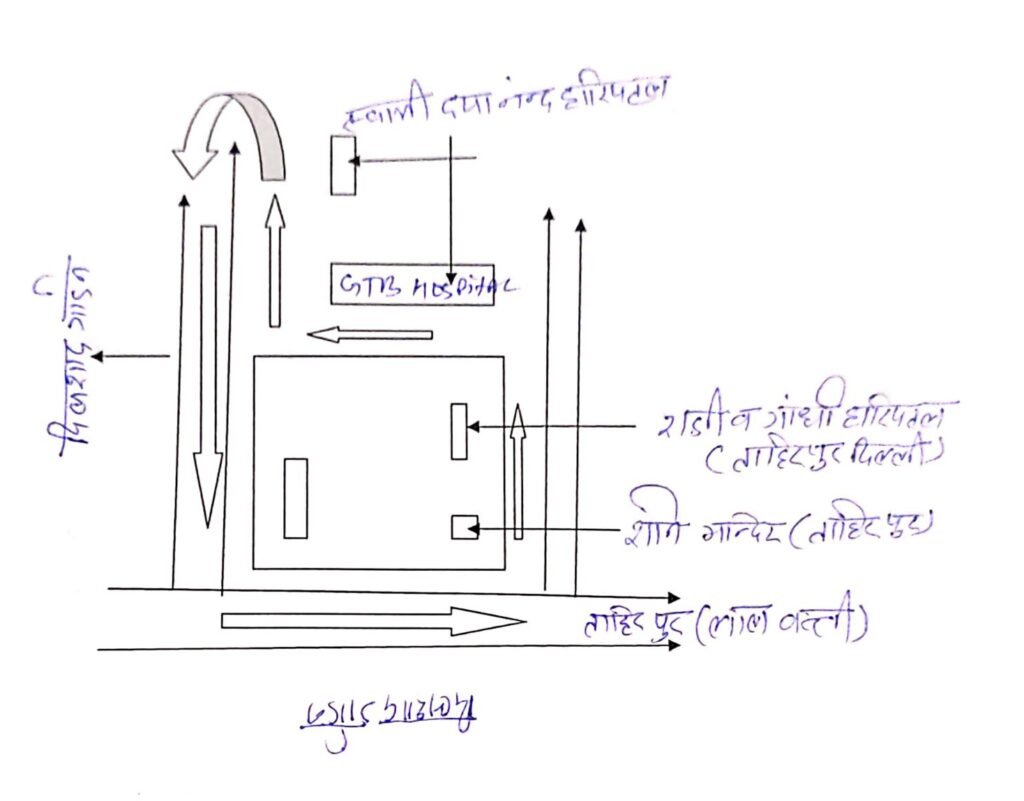 स्वामी दयानंद हास्पिटल
GTB HOSPITAL
दिलशाद गार्डन
राजीव गांधी हास्पिटल
(ताहिरपुर दिल्ली)
शनि मन्दिर (ताहिरपुर)
ताहिरपुर (लाल बत्ती)